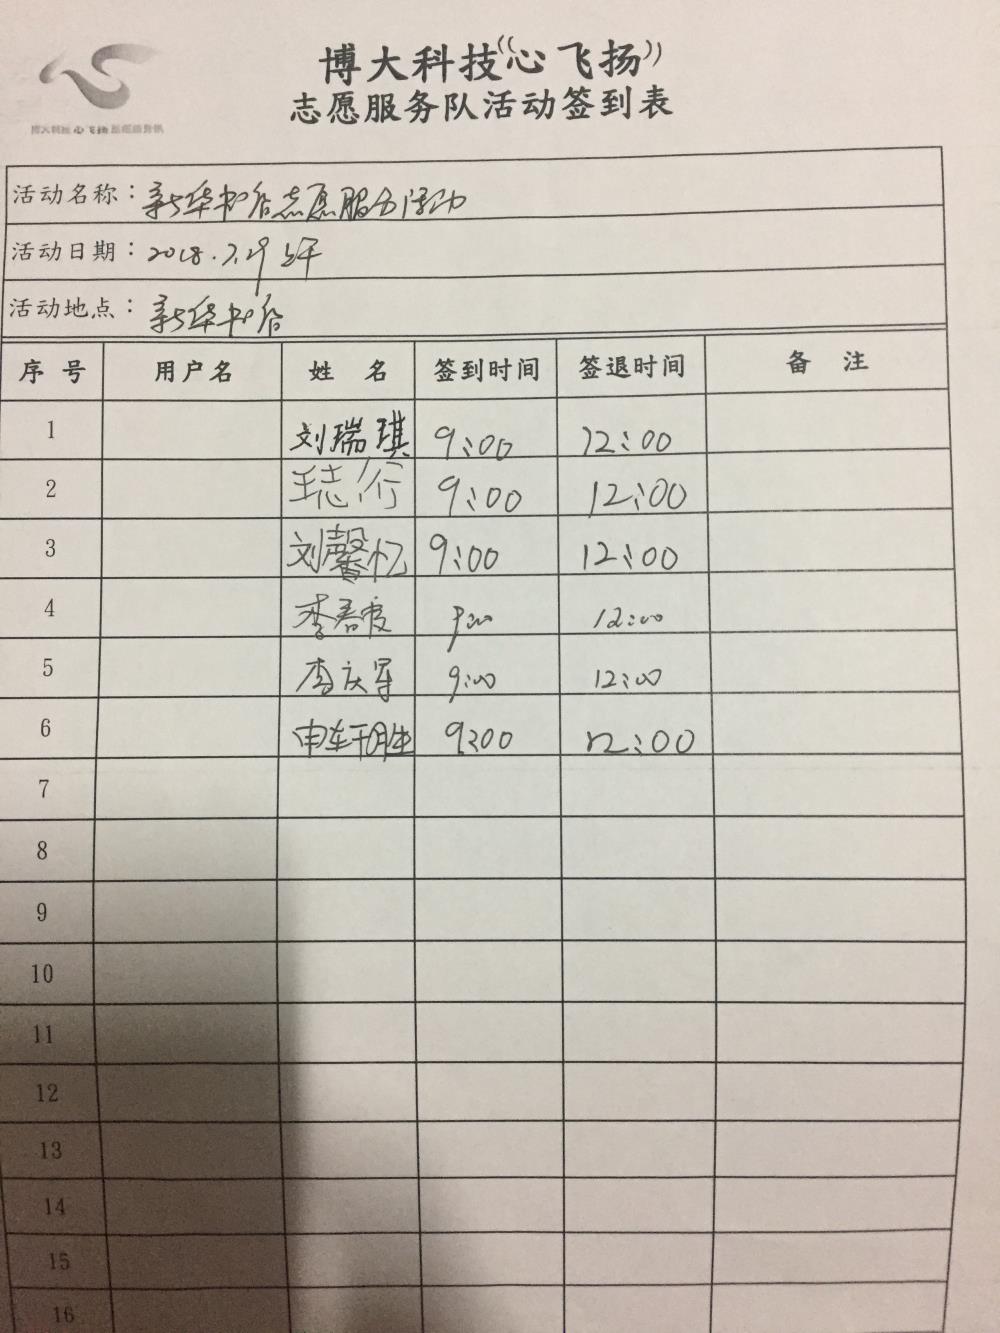 博大科技“心飞扬”
志愿服务队活动签到表
博大科技 心飞扬 志愿服务队
活动名称：新华书店志愿服务活动
活动日期：2018.7.29 上午
活动地点：新华书店
序号 用户名 姓名 签到时间 签退时间 备注
1 刘瑞琪 9:00 12:00
2 王志行 9:00 12:00
3 刘馨忆 9:00 12:00
4 李 9:00 12:00
5 李庆军 9:00 12:00
6 申 9:00 12:00
7
8
9
10
11
12
13
14
15
16